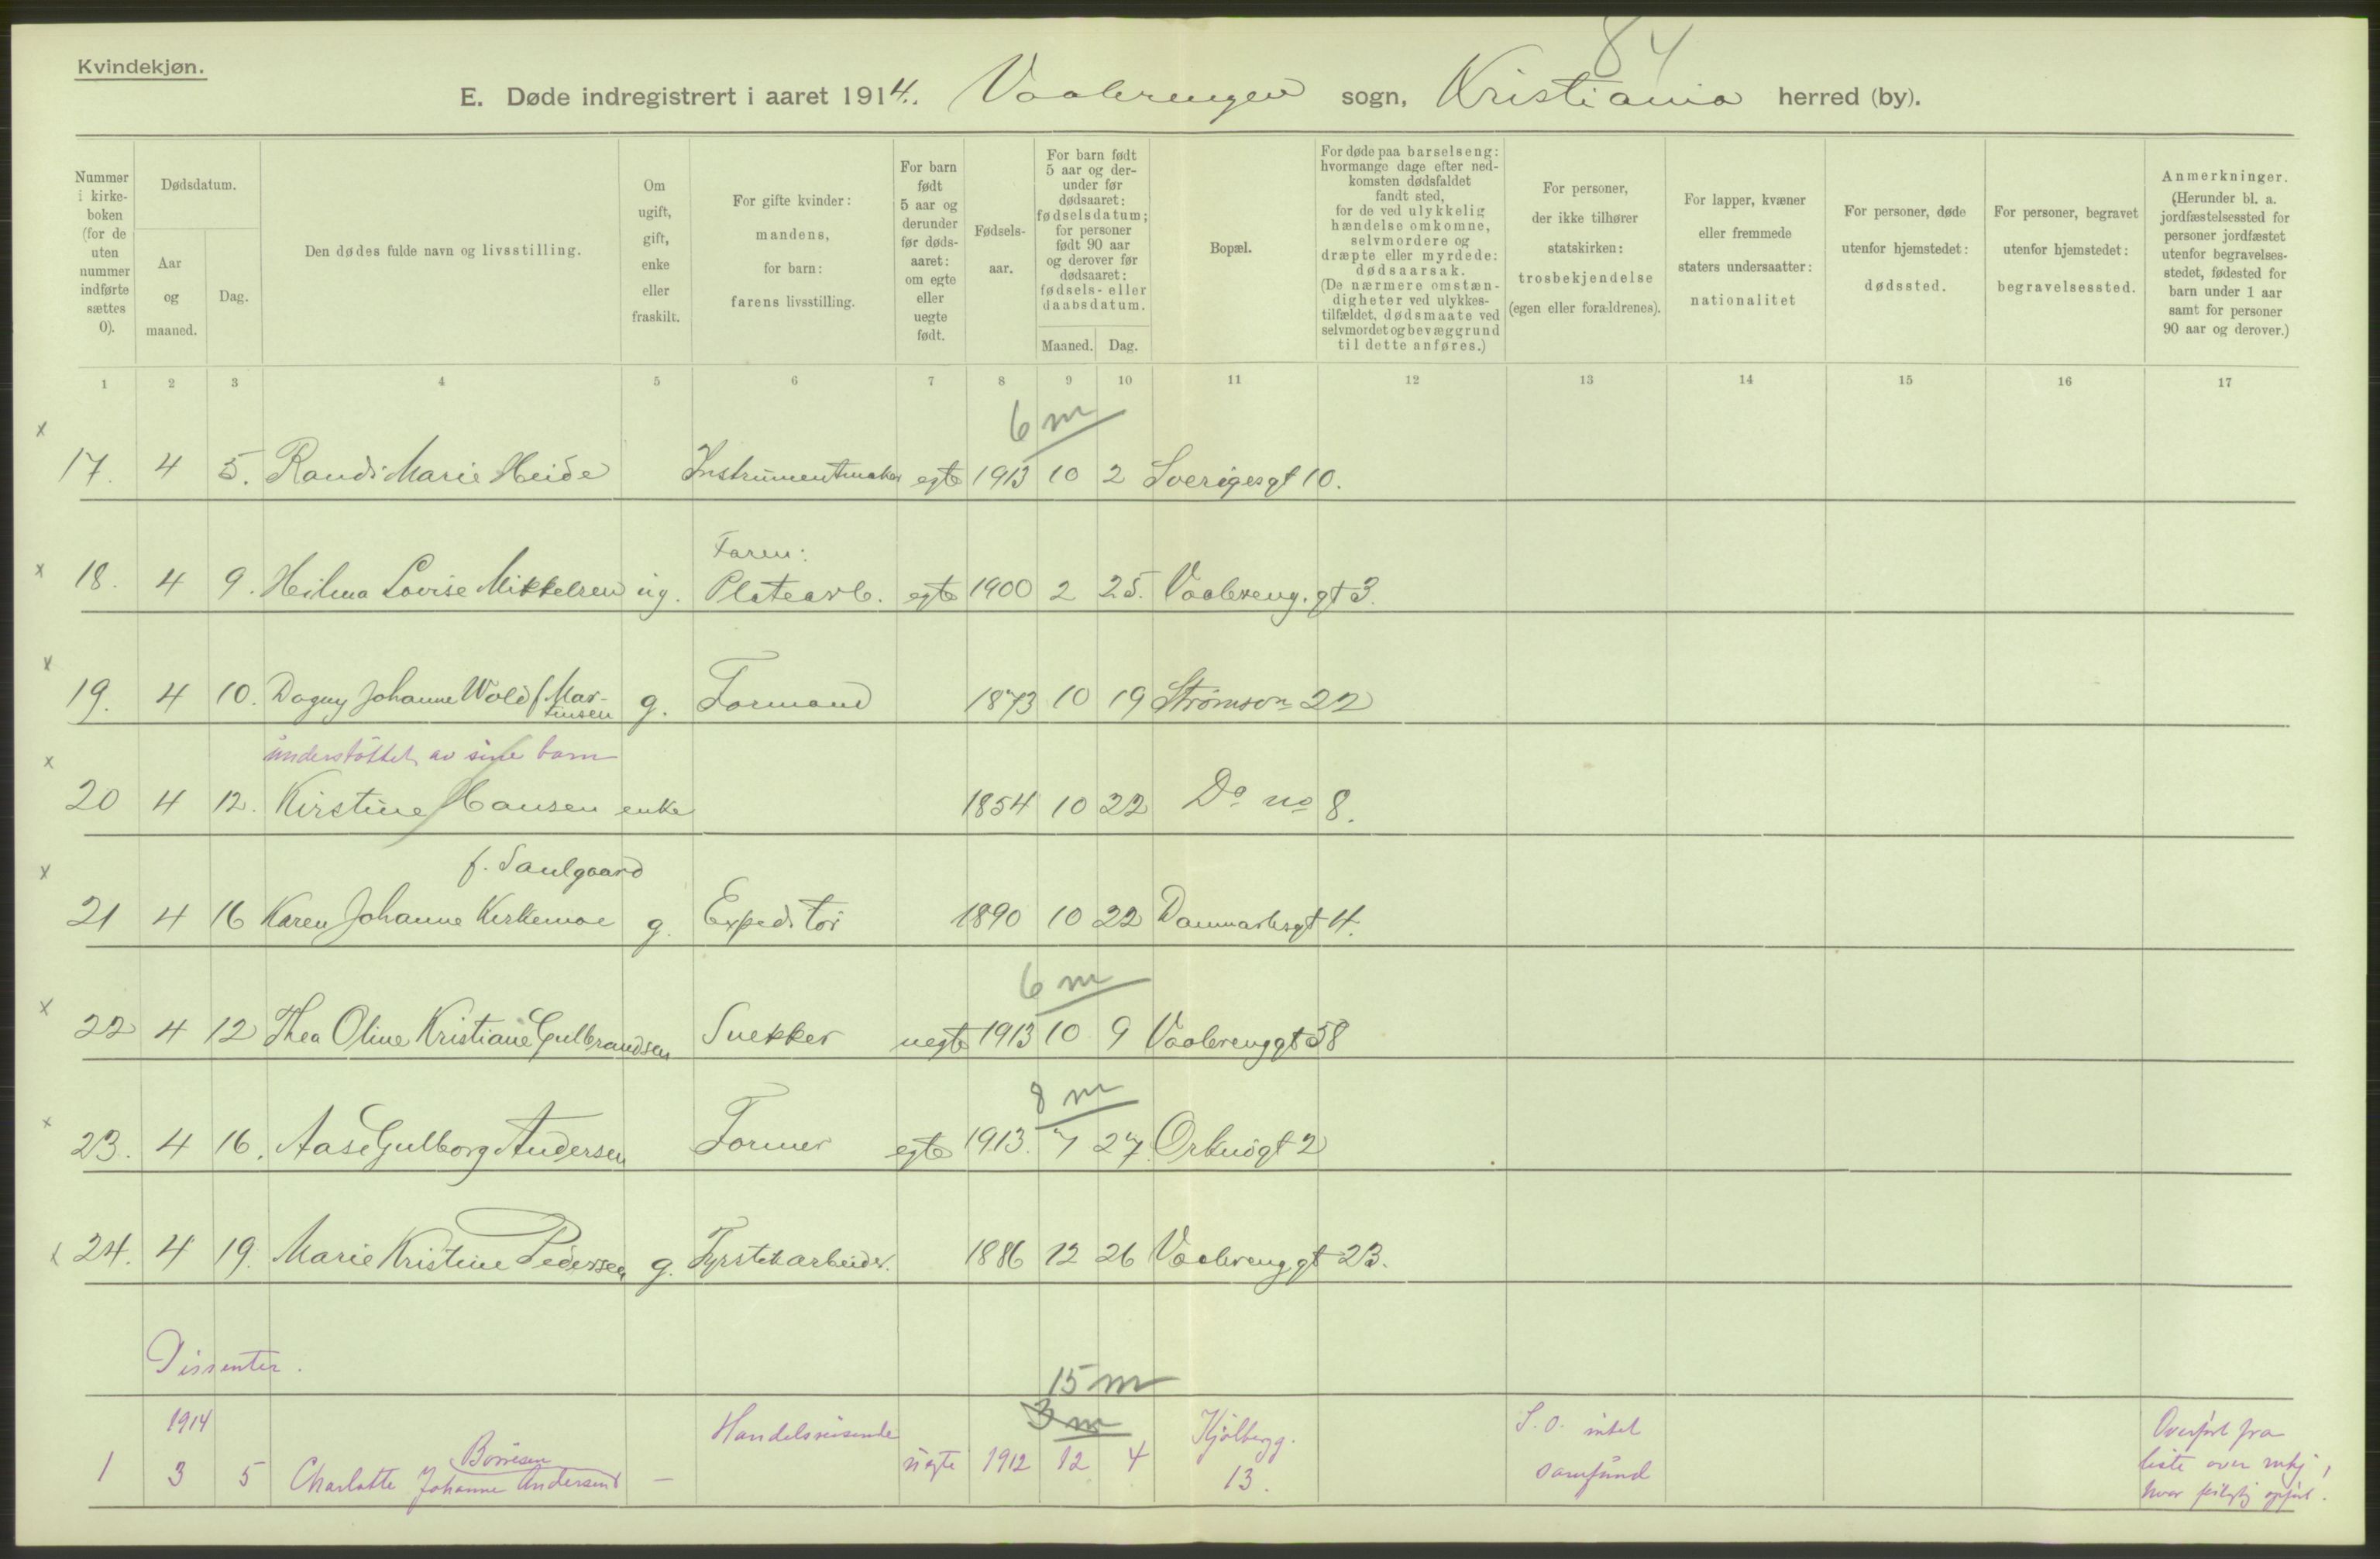 84
Kvindekjøn.
E. Døde indregistrert i aaret 1914. Vaalerengen sogn, Kristiania herred (by).
Nummer i kirke-boken (for de uten nummer indførte sættes 0).
Dødsdatum.
Aar og maaned.
Dag.
Den dødes fulde navn og livsstilling.
Om ugift, gift, enke eller fraskilt.
For gifte kvinder: mandens, for barn: farens livsstilling.
For barn født 5 aar og derunder før døds-aaret: om egte eller uegte født.
Fødsels-aar.
For barn født 5 aar og der-under før dødsaaret: fødselsdatum; for personer født 90 aar og derover før dødsaaret: fødsels- eller daabsdatum.
Maaned. Dag.
Bopæl.
For døde paa barselseng: hvormange dage efter ned-komsten dødsfaldet fandt sted, for de ved ulykkelig hændelse omkomne, selvmordere og dræpte eller myrdede: dødsaarsak. (De nærmere omstæn-digheter ved ulykkes-tilfældet, dødsmaate ved selvmordet og bevæggrund til dette anføres.)
For personer, der ikke tilhører statskirken: trosbekjendelse (egen eller forældrenes).
For lapper, kvæner eller fremmede staters undersaatter: nationalitet
For personer, døde utenfor hjemstedet: dødssted.
For personer, begravet utenfor hjemstedet: begravelsessted.
Anmerkninger. (Herunder bl. a. jordfæstelsessted for personer jordfæstet utenfor begravelses-stedet, fødested for barn under 1 aar samt for personer 90 aar og derover.)
1 2 3 4 5 6 7 8 9 10 11 12 13 14 15 16 17
6 m
x 17. 4 5. Randi Marie Heide Instrumentmaker egte 1913 10 2 Sverigesgt 10.
Faren:
x 18. 4 9. Heilma Lovise Mikkelsen ug. Platearb. egte 1900 2 25. Vaalereng.gt 3.
x 19. 4 10. Dagny Johanne Wold f. Mar-tinsen g. Formand 1873 10 19 Strømsvn 22
understöttet av sine barn
x 20 4 12. Kirstine Hansen enke 1854 10 22 Do no 8.
f. Saulgaard
x 21 4 16 Karen Johanne Kirkemoe g. Expeditör 1890 10 22 Danmarksgt 4.
6 m
x 22 4 12 Thea Oline Kristiane Gulbrandsen Snekker uegte 1913 10 9 Vaalerenggt 58
8 m
x 23. 4 16. Aase Gulborg Andersen Former egte 1913. 7 27. Orknögt 2
x 24. 4 19. Marie Kristine Pedersen g. Fyrstikarbeider. 1886 12 26 Vaalerenggt 23.
Dissenter.
15 m
1914 3 m
1 3 5 Charlotte Johanne Andersen Börresen — Handelsreisende uegte 1912 12 4 Kjölbergg. 13. S. O. intet samfund
Overført fra
liste over mkj,
hvor feilagtig opført.